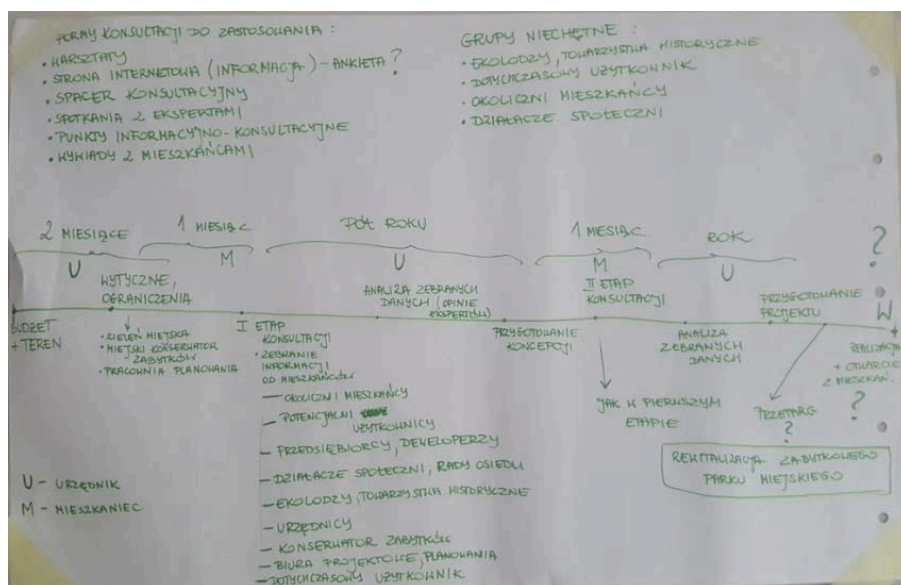 FORMY KONSULTACJI DO ZASTOSOWANIA :
• WARSZTATY
• STRONA INTERNETOWA (INFORMACJA) - ANKIETA ?
• SPACER KONSULTACYJNY
• SPOTKANIA Z EKSPERTAMI
• PUNKTY INFORMACYJNO-KONSULTACYJNE
• WYWIADY Z MIESZKAŃCAMI
GRUPY NIECHĘTNE :
• EKOLODZY, TOWARZYSTWA HISTORYCZNE
• DOTYCHCZASOWY UŻYTKOWNIK
• OKOLICZNI MIESZKAŃCY
• DZIAŁACZE SPOŁECZNI
2 MIESIĄCE
1 MIESIĄC
PÓŁ ROKU
1 MIESIĄC
ROK
?
U
M
U
M
U
W
BUDŻET
+ TEREN
WYTYCZNE,
OGRANICZENIA
• ZIELEŃ MIEJSKA
• MIEJSKI KONSERWATOR
ZABYTKÓW
• PRACOWNIA PLANOWANIA
I ETAP
KONSULTACJI
• ZEBRANIE
INFORMACJI
OD MIESZKAŃCÓW
— OKOLICZNI MIESZKAŃCY
— POTENCJALNI
UŻYTKOWNICY
— PRZEDSIĘBIORCY, DEWELOPERZY
— DZIAŁACZE SPOŁECZNI, RADY OSIEDLI
— EKOLODZY, TOWARZYSTWA HISTORYCZNE
— URZĘDNICY
— KONSERWATOR ZABYTKÓW
— BIURA PROJEKTOWE, PLANOWANIA
— DOTYCHCZASOWY UŻYTKOWNIK
ANALIZA ZEBRANYCH
DANYCH (OPINIE
EKSPERTÓW)
PRZYGOTOWANIE
KONCEPCJI
II ETAP
KONSULTACJI
JAK W PIERWSZYM
ETAPIE
ANALIZA
ZEBRANYCH
DANYCH
PRZYGOTOWANIE
PROJEKTU
PRZETARG
?
REALIZACJA
+ OTWARCIE
Z MIESZKAŃ.
?
REWITALIZACJA ZABYTKOWEGO
PARKU MIEJSKIEGO
U - URZĘDNIK
M - MIESZKANIEC